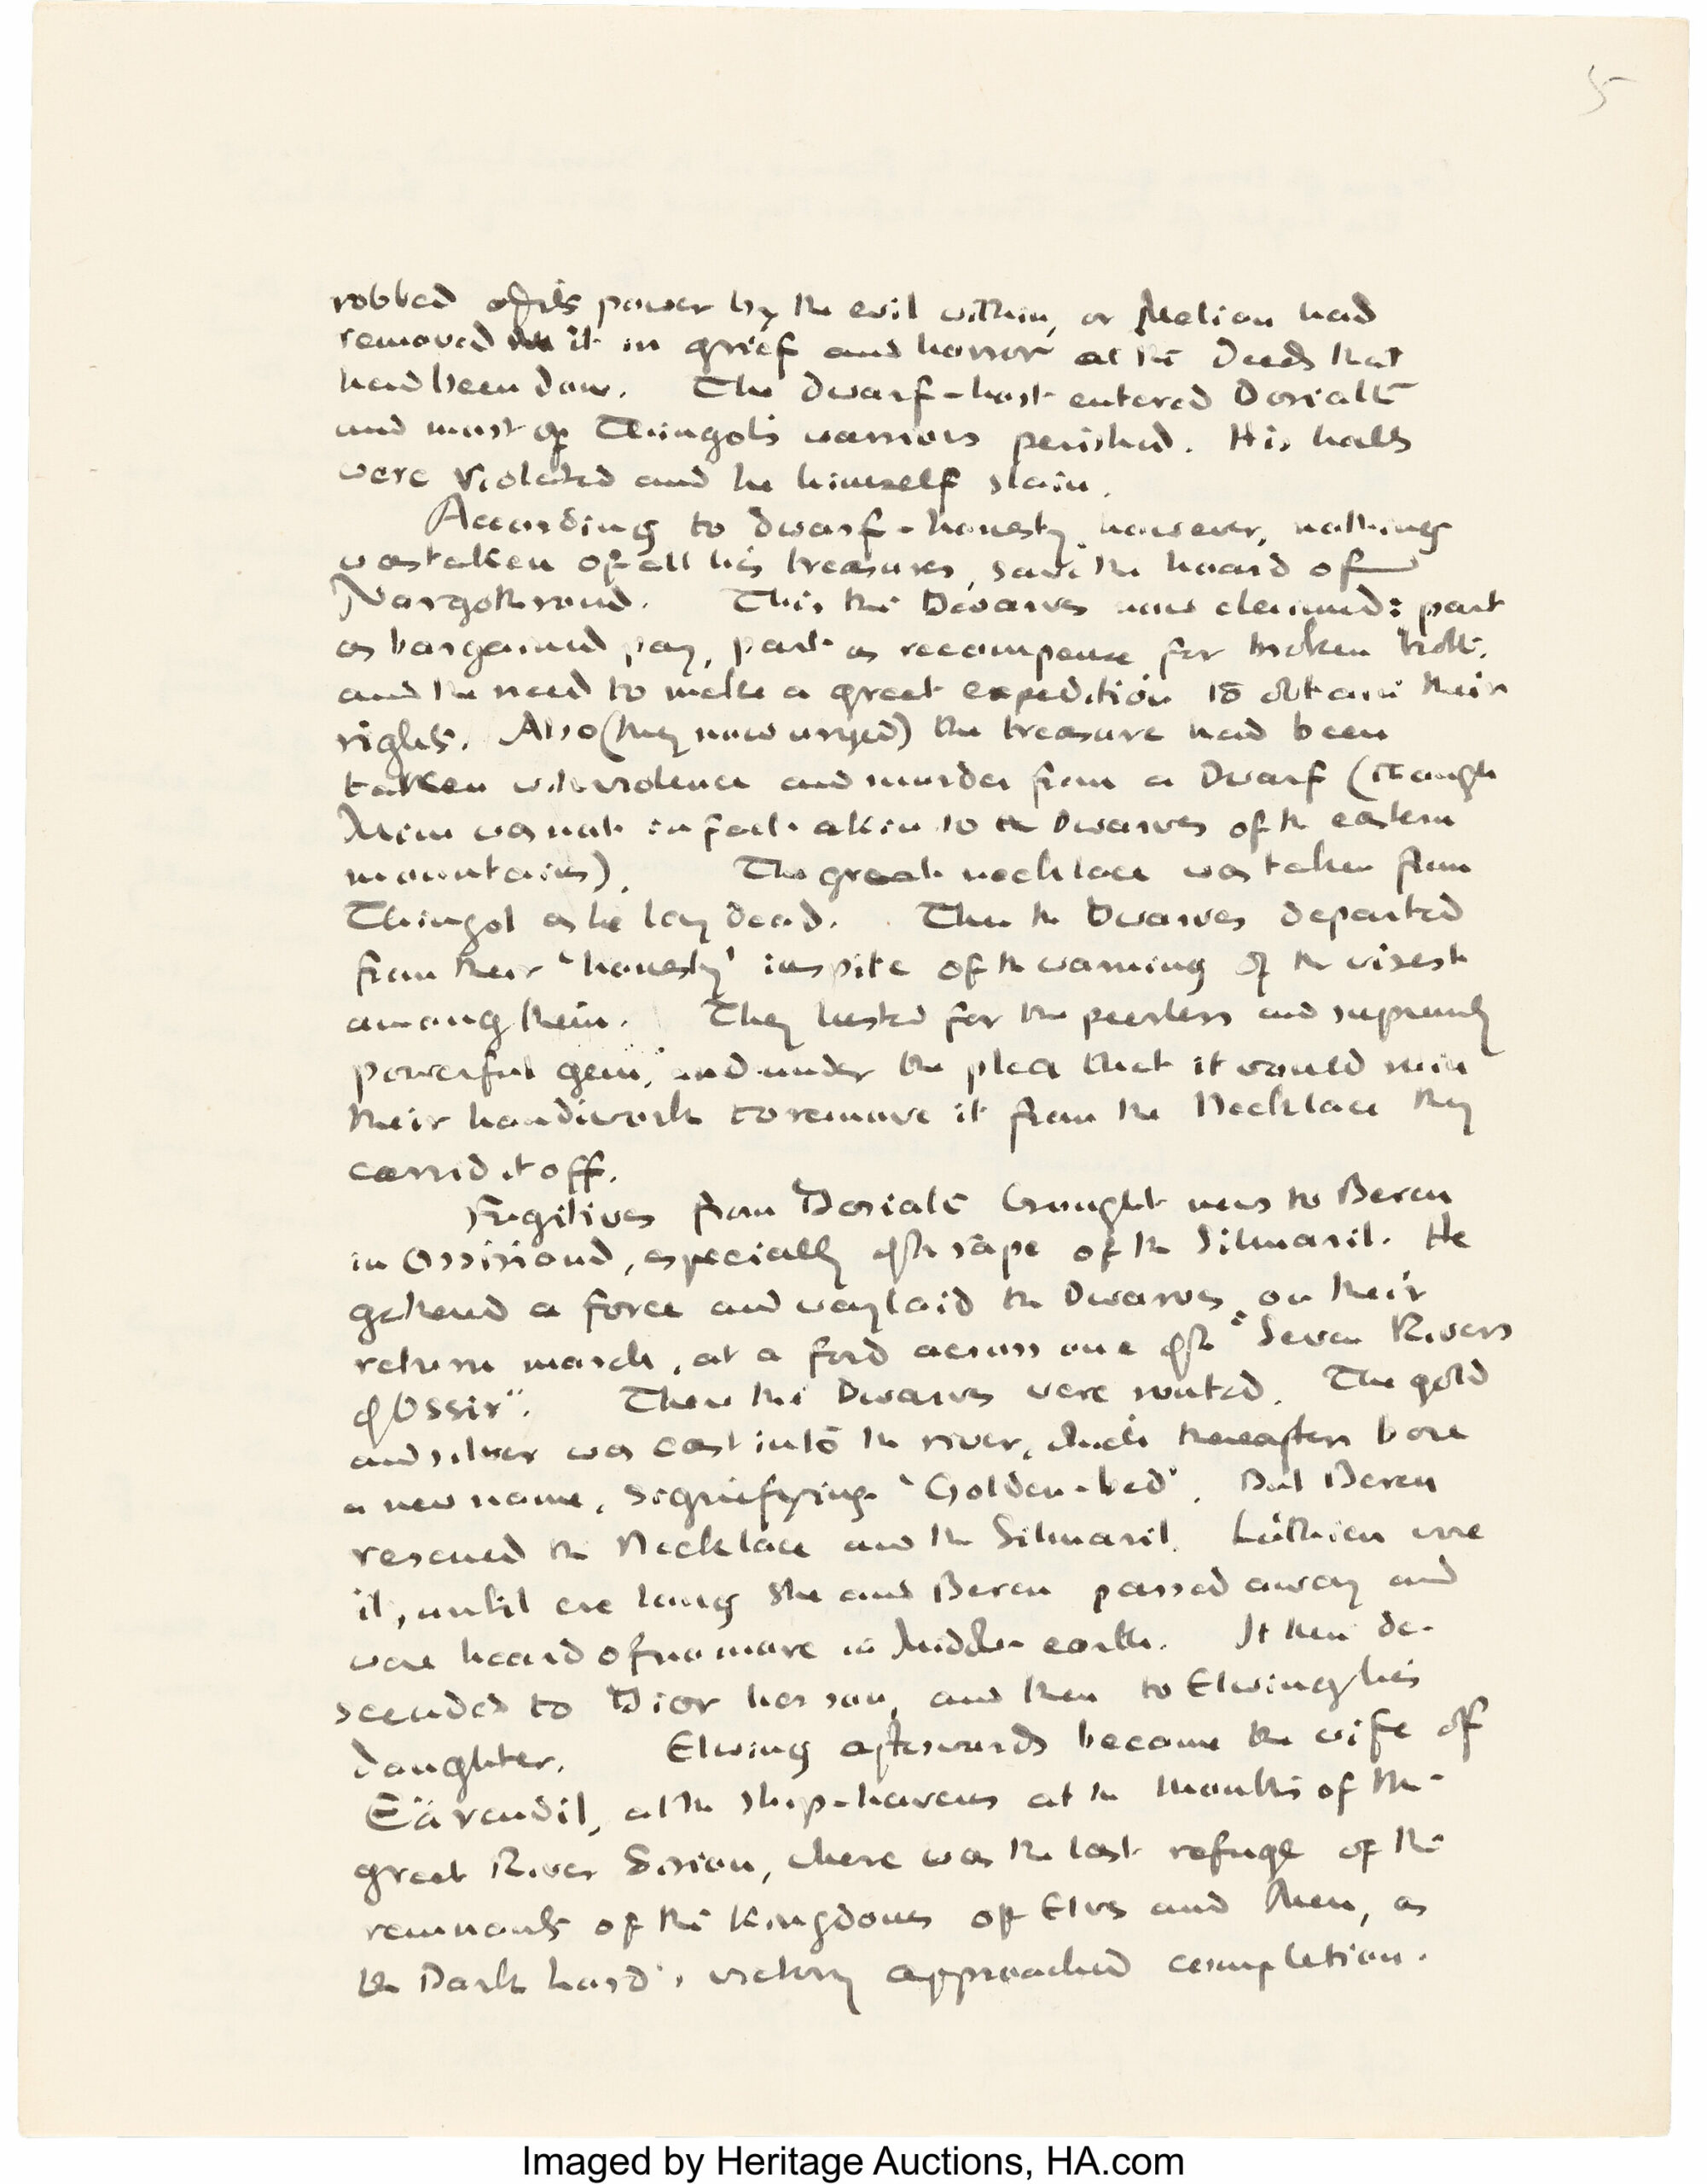 5
robbed of its power by the evil within, or Melian had
removed it in grief and horror at the deeds that
had been done. The dwarf-host entered Doriath
and most of Thingol's warriors perished. His halls
were violated and he himself slain.
According to dwarf-honesty, however, nothing
was taken of all his treasures, save the hoard of
Nargothrond. This the Dwarves now claimed: part
as bargained pay, part as recompense for broken troth,
and the need to make a great expedition to obtain their
rights. Also (they now urged) the treasure had been
taken with violence and murder from a Dwarf (though
Mîm was not in fact akin to the Dwarves of the eastern
mountains). The great necklace was taken from
Thingol as he lay dead. Then the Dwarves departed
from their 'honesty' in spite of the warning of the wisest
among them. They lusted for the peerless and supremely
powerful gem, and under the plea that it would ruin
their handiwork to remove it from the Necklace they
carried it off.
Fugitives from Doriath brought news to Beren
in Ossiriand, especially of the rape of the Silmaril. He
gathered a force and waylaid the Dwarves on their
return march, at a ford across one of the "Seven Rivers
of Ossir". Then the Dwarves were routed. The gold
and silver was cast into the river, which thereafter bore
a new name, signifying 'Golden-bed'. But Beren
rescued the Necklace and the Silmaril. Lúthien wore
it, until ere long she and Beren passed away and
were heard of no more in Middle-earth. It then de-
scended to Dior her son, and then to Elwing his
daughter. Elwing afterwards became the wife of
Eärendil, at the ship-havens at the mouths of the
great River Sirion, where was the last refuge of the
remnants of the Kingdoms of Elves and Men, as
the Dark Lord's victory approached completion.
Imaged by Heritage Auctions, HA.com